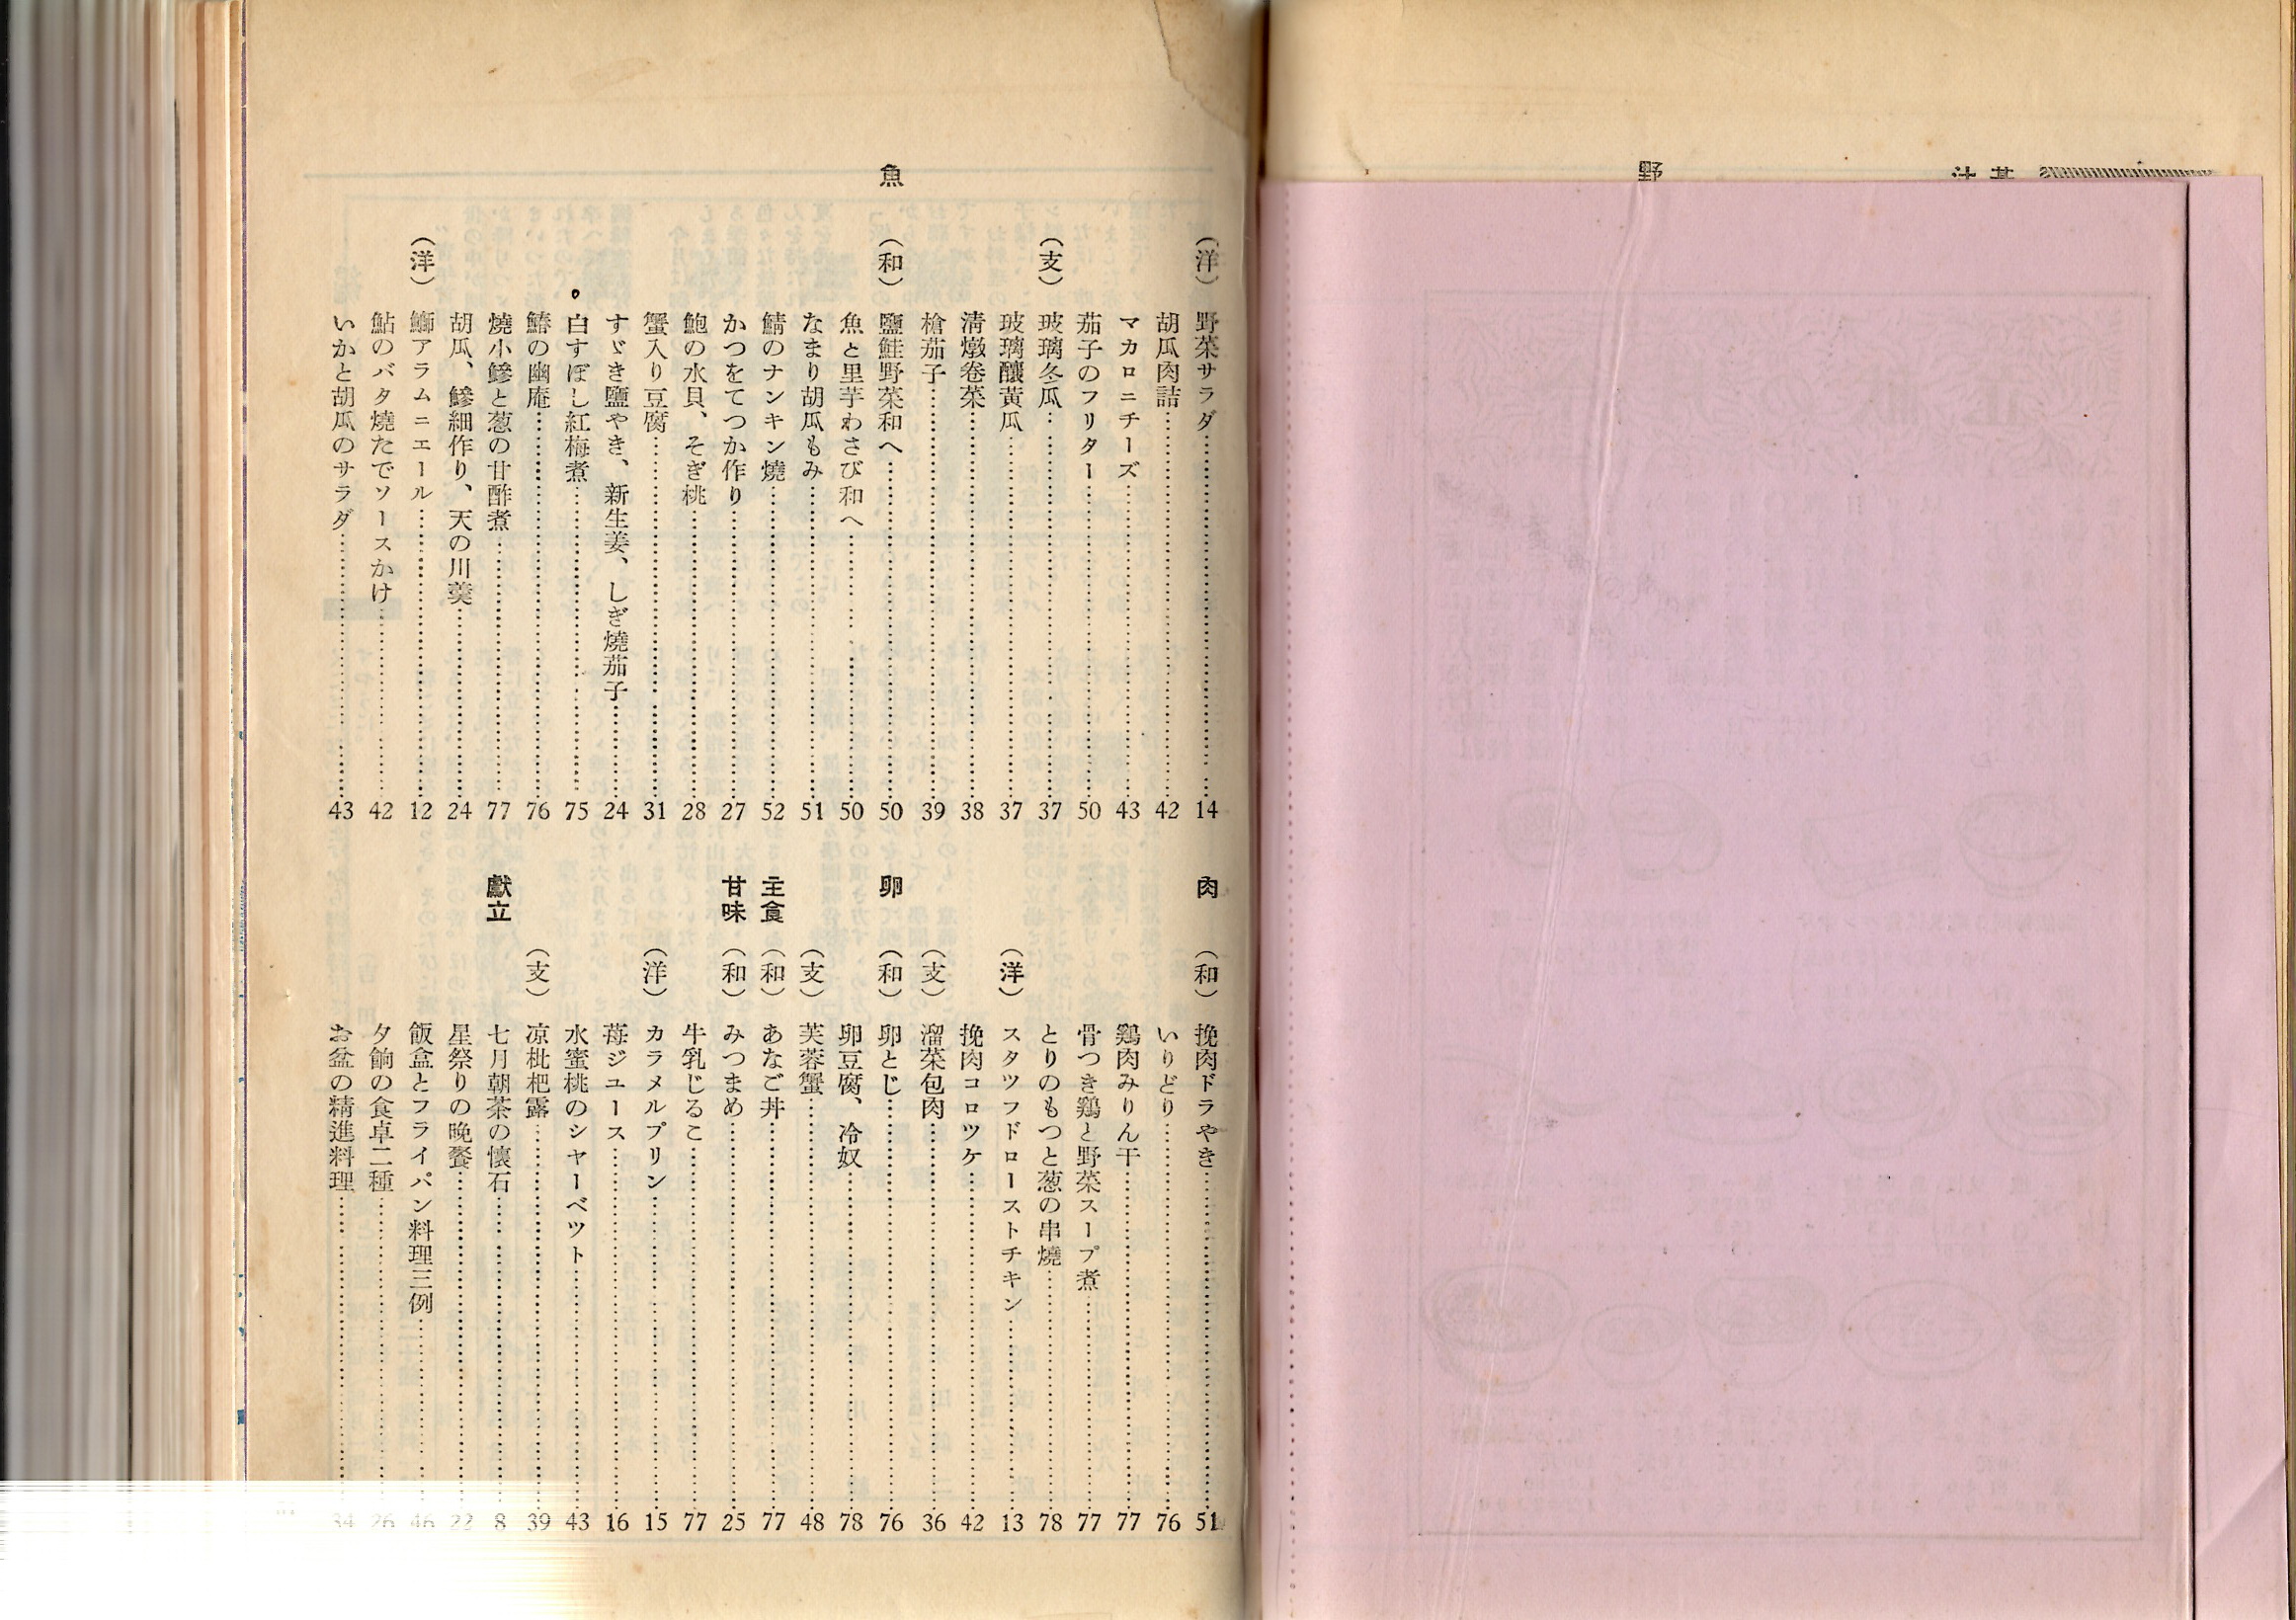 野
（洋）野菜サラダ 14
胡瓜肉詰 42
マカロニチーズ 43
茄子のフリター 50
（支）玻璃冬瓜 37
玻璃釀黃瓜 37
清燉卷菜 38
槍茄子 39
魚（和）鹽鮭野菜和へ 50
魚と里芋わさび和へ 50
なまり胡瓜もみ 51
鯖のナンキン燒 52
かつをてつか作り 27
鮑の水貝、そぎ桃 28
蟹入り豆腐 31
すゞき鹽やき、新生姜、しぎ燒茄子 24
白すぼし紅梅煮 75
鰆の幽庵 76
燒小鰺と葱の甘酢煮 77
胡瓜、鰺細作り、天の川羹 24
（洋）鰤アラムニエール 12
鮎のバタ燒たでソースかけ 42
いかと胡瓜のサラダ 43
肉（和）挽肉ドラやき 51
いりどり 76
鷄肉みりん干 77
骨つき鷄と野菜スープ煮 77
とりのもつと葱の串燒 78
（洋）スタツフドローストチキン 13
挽肉コロツケ 42
（支）溜菜包肉 36
卵（和）卵とじ 76
卵豆腐、冷奴 78
（支）芙蓉蟹 48
主食（和）あなご丼 77
甘味（和）みつまめ 25
牛乳じるこ 77
（洋）カラメルプリン 15
苺ジユース 16
水蜜桃のシャーベツト 43
（支）凉枇杷露 39
獻立 七月朝茶の懷石 8
星祭りの晩餐 22
飯盒とフライパン料理三例 46
夕餉の食卓二種 26
お盆の精進料理 34